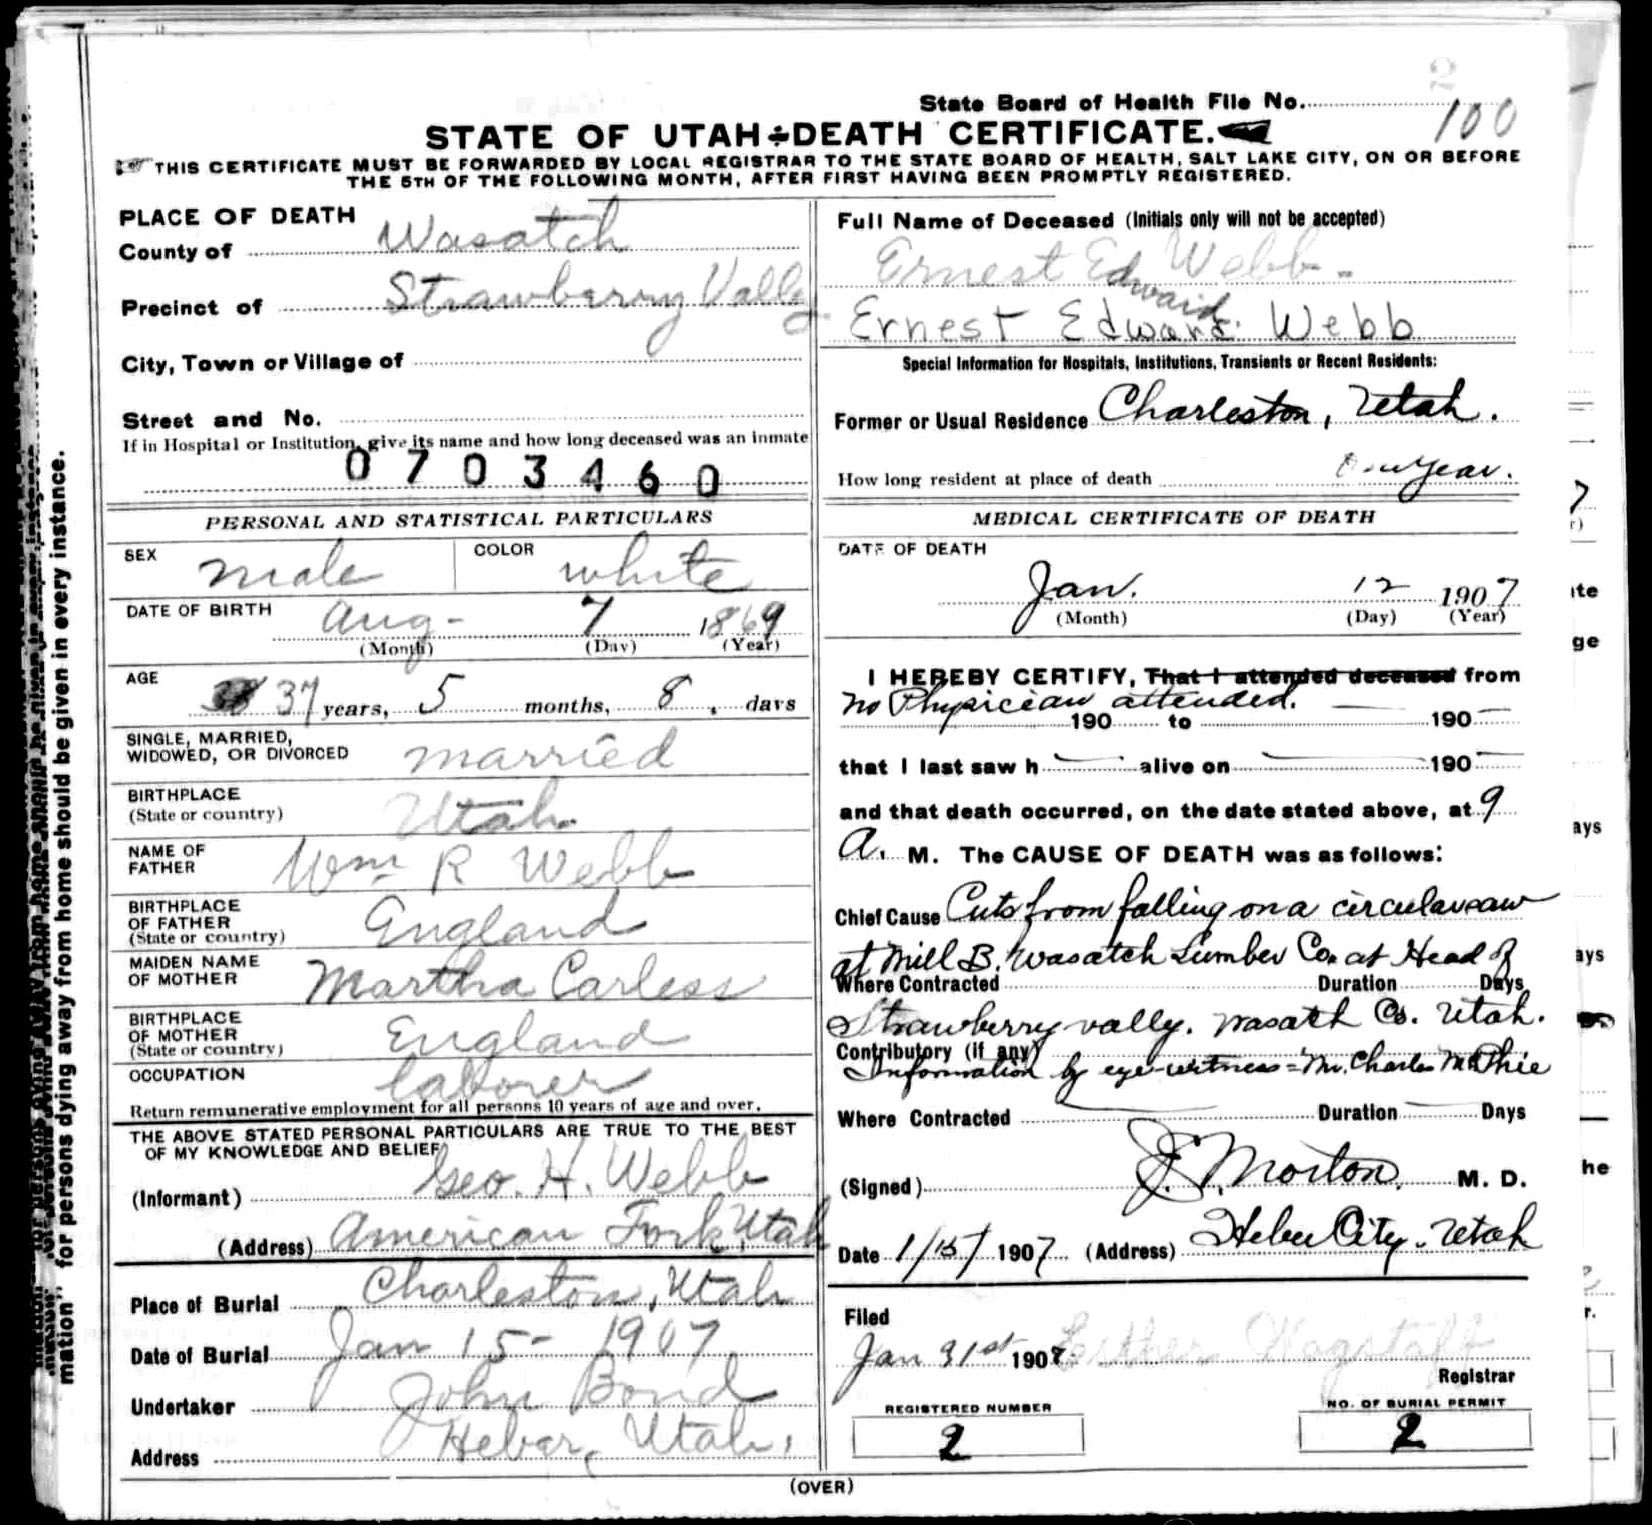 2
State Board of Health File No. 100
STATE OF UTAH÷DEATH CERTIFICATE.
THIS CERTIFICATE MUST BE FORWARDED BY LOCAL REGISTRAR TO THE STATE BOARD OF HEALTH, SALT LAKE CITY, ON OR BEFORE
THE 5TH OF THE FOLLOWING MONTH, AFTER FIRST HAVING BEEN PROMPTLY REGISTERED.
PLACE OF DEATH
County of Wasatch
Precinct of Strawberry Vally
City, Town or Village of
Street and No.
If in Hospital or Institution, give its name and how long deceased was an inmate
0703460
PERSONAL AND STATISTICAL PARTICULARS
SEX male COLOR white
DATE OF BIRTH Aug- 7 1869
(Month) (Day) (Year)
AGE
37 years, 5 months, 8, days
SINGLE, MARRIED,
WIDOWED, OR DIVORCED married
BIRTHPLACE
(State or country) Utah
NAME OF
FATHER Wm R Webb
BIRTHPLACE
OF FATHER
(State or country) England
MAIDEN NAME
OF MOTHER Martha Carless
BIRTHPLACE
OF MOTHER
(State or country) England
OCCUPATION laborer
Return remunerative employment for all persons 10 years of age and over.
THE ABOVE STATED PERSONAL PARTICULARS ARE TRUE TO THE BEST
OF MY KNOWLEDGE AND BELIEF
(Informant) Geo. H. Webb
(Address) American Fork, Utah
Place of Burial Charleston, Utah
Date of Burial Jan 15- 1907
Undertaker John Bond
Address Heber, Utah,
Full Name of Deceased (Initials only will not be accepted)
Ernest Edward Webb-
Ernest Edward. Webb
Special Information for Hospitals, Institutions, Transients or Recent Residents:
Former or Usual Residence Charleston, Utah.
How long resident at place of death One Year.
MEDICAL CERTIFICATE OF DEATH
DATE OF DEATH
Jan. 12 1907
(Month) (Day) (Year)
I HEREBY CERTIFY, That I attended deceased from
No Physician attended.
190 to 190
that I last saw h alive on 190
and that death occurred, on the date stated above, at 9
A. M. The CAUSE OF DEATH was as follows:
Chief Cause Cuts from falling on a circular saw
at Mill B. Wasatch Lumber Co. at Head of
Where Contracted Duration Days
Strawberry vally. Wasatch Co. Utah.
Contributory (if any)
Information by eye-witness = Mr. Charles McPhie
Where Contracted Duration Days
(Signed) Morton, M. D.
Date 1/15/1907 (Address) Heber City. Utah
Filed
Jan 31st 1907 Esther Wagstaff
Registrar
REGISTERED NUMBER
2
NO. OF BURIAL PERMIT
2
(OVER)
mation" for persons dying away from home should be given in every instance.